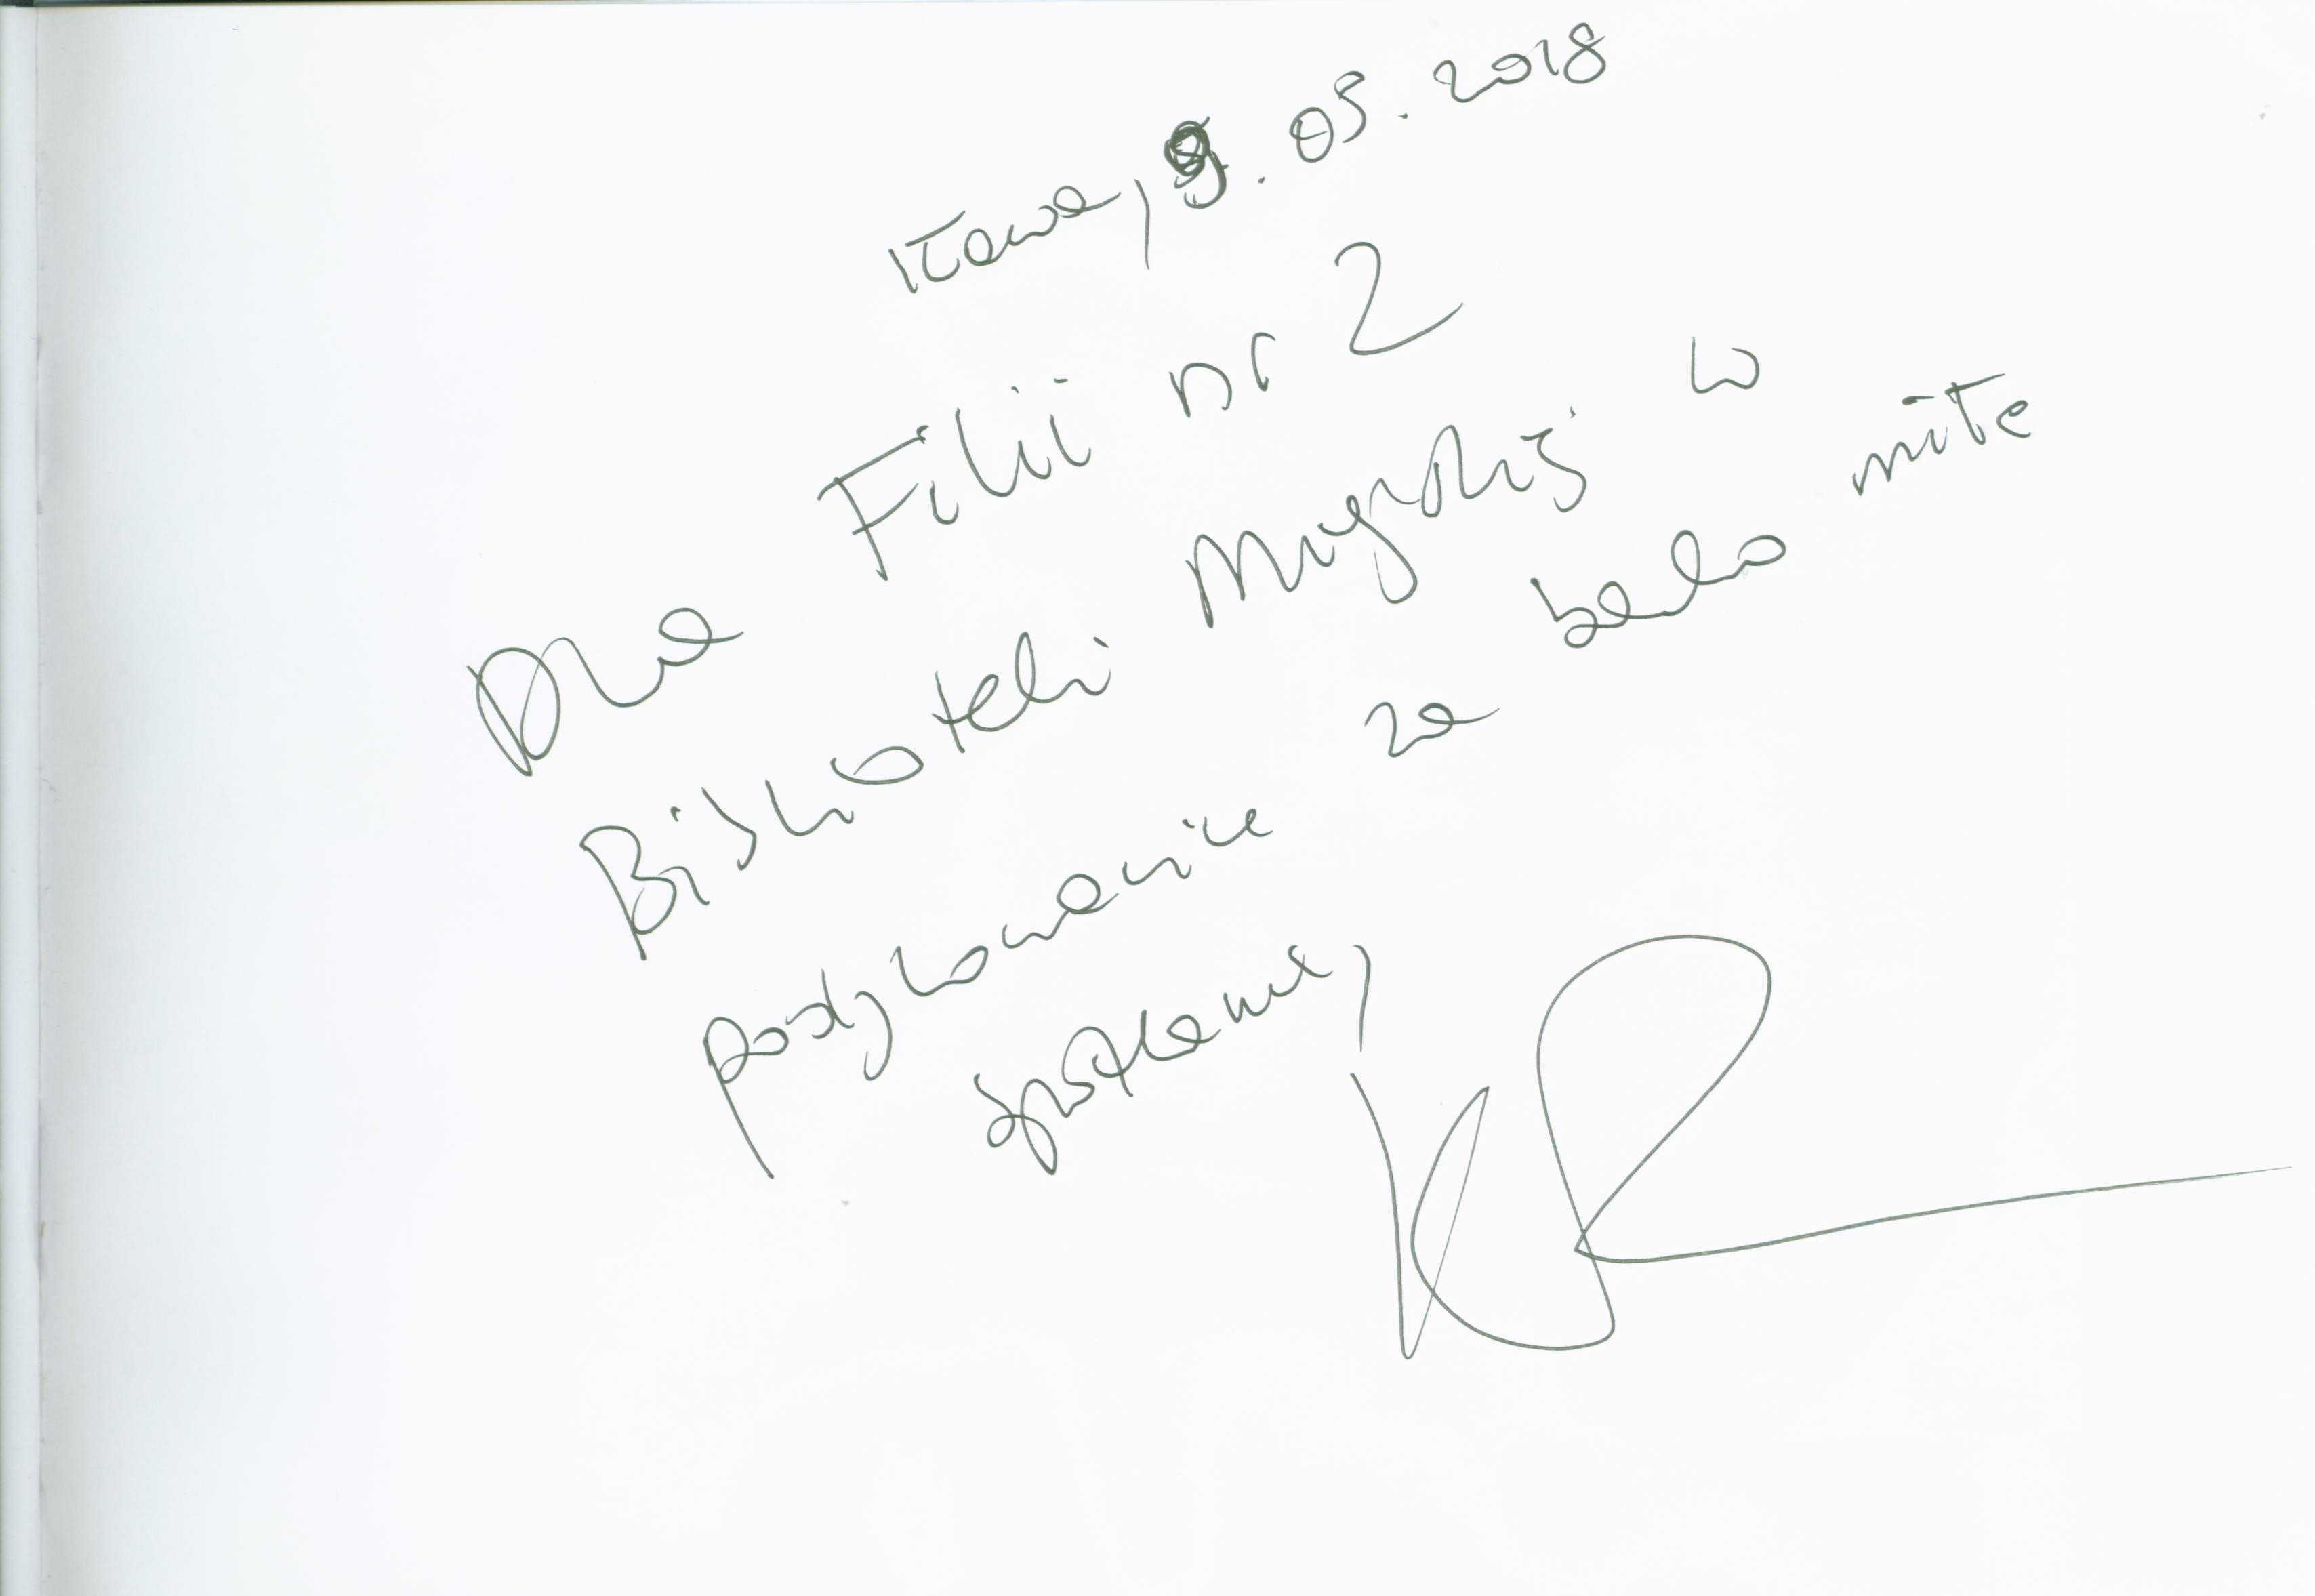 Iława, 9.05.2018
Dla Filii nr 2
Biblioteki Miejskiej w
podziękowanie za bardzo miłe
spotkanie,